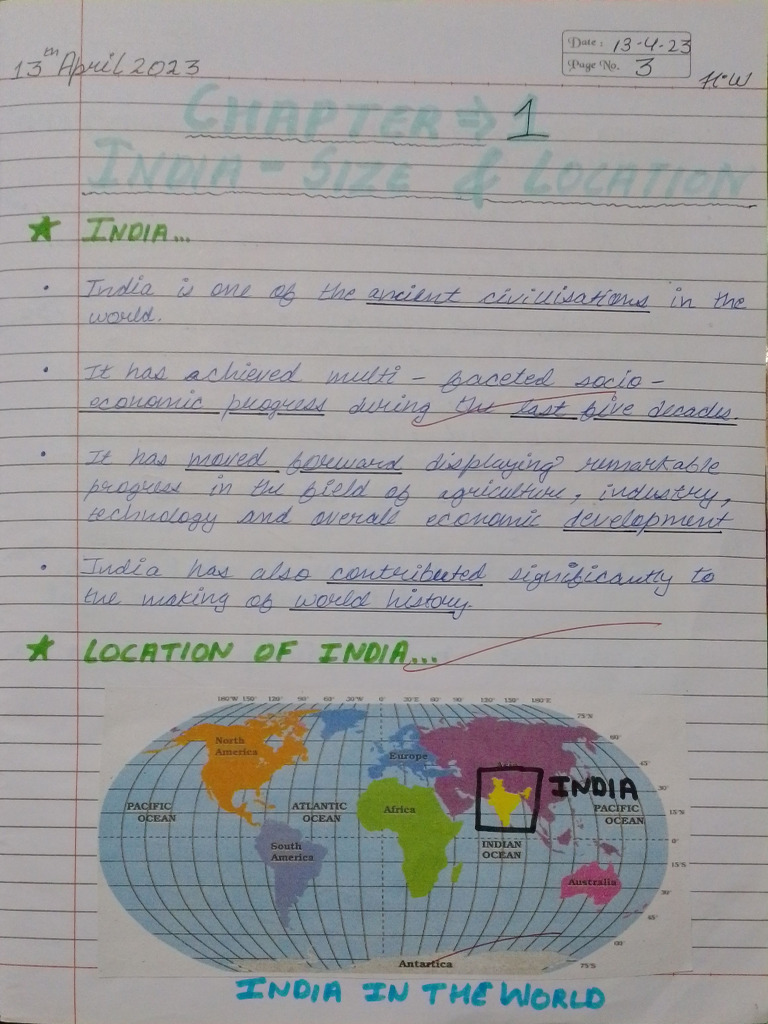 13th April 2023
Date: 13-4-23
Page No. 3
H.W
CHAPTER ⇒ 1
INDIA - SIZE & LOCATION
★ INDIA...
• India is one of the ancient civilisations in the
world.
• It has achieved multi - faceted socio -
economic progress during the last five decades.
• It has moved forward displaying remarkable
progress in the field of agriculture, industry,
technology and overall economic development
• India has also contributed significantly to
the making of world history.
★ LOCATION OF INDIA...
180°W 150° 120° 90° 60° 30°W 0° 30°E 60° 90° 120° 150° 180°E
75°N
60°
45°
30°
15°N
0°
15°S
30°
45°
60°
75°S
North
America
Europe
Asia
INDIA
PACIFIC
OCEAN
ATLANTIC
OCEAN
Africa
PACIFIC
OCEAN
South
America
INDIAN
OCEAN
Australia
Antartica
INDIA IN THE WORLD